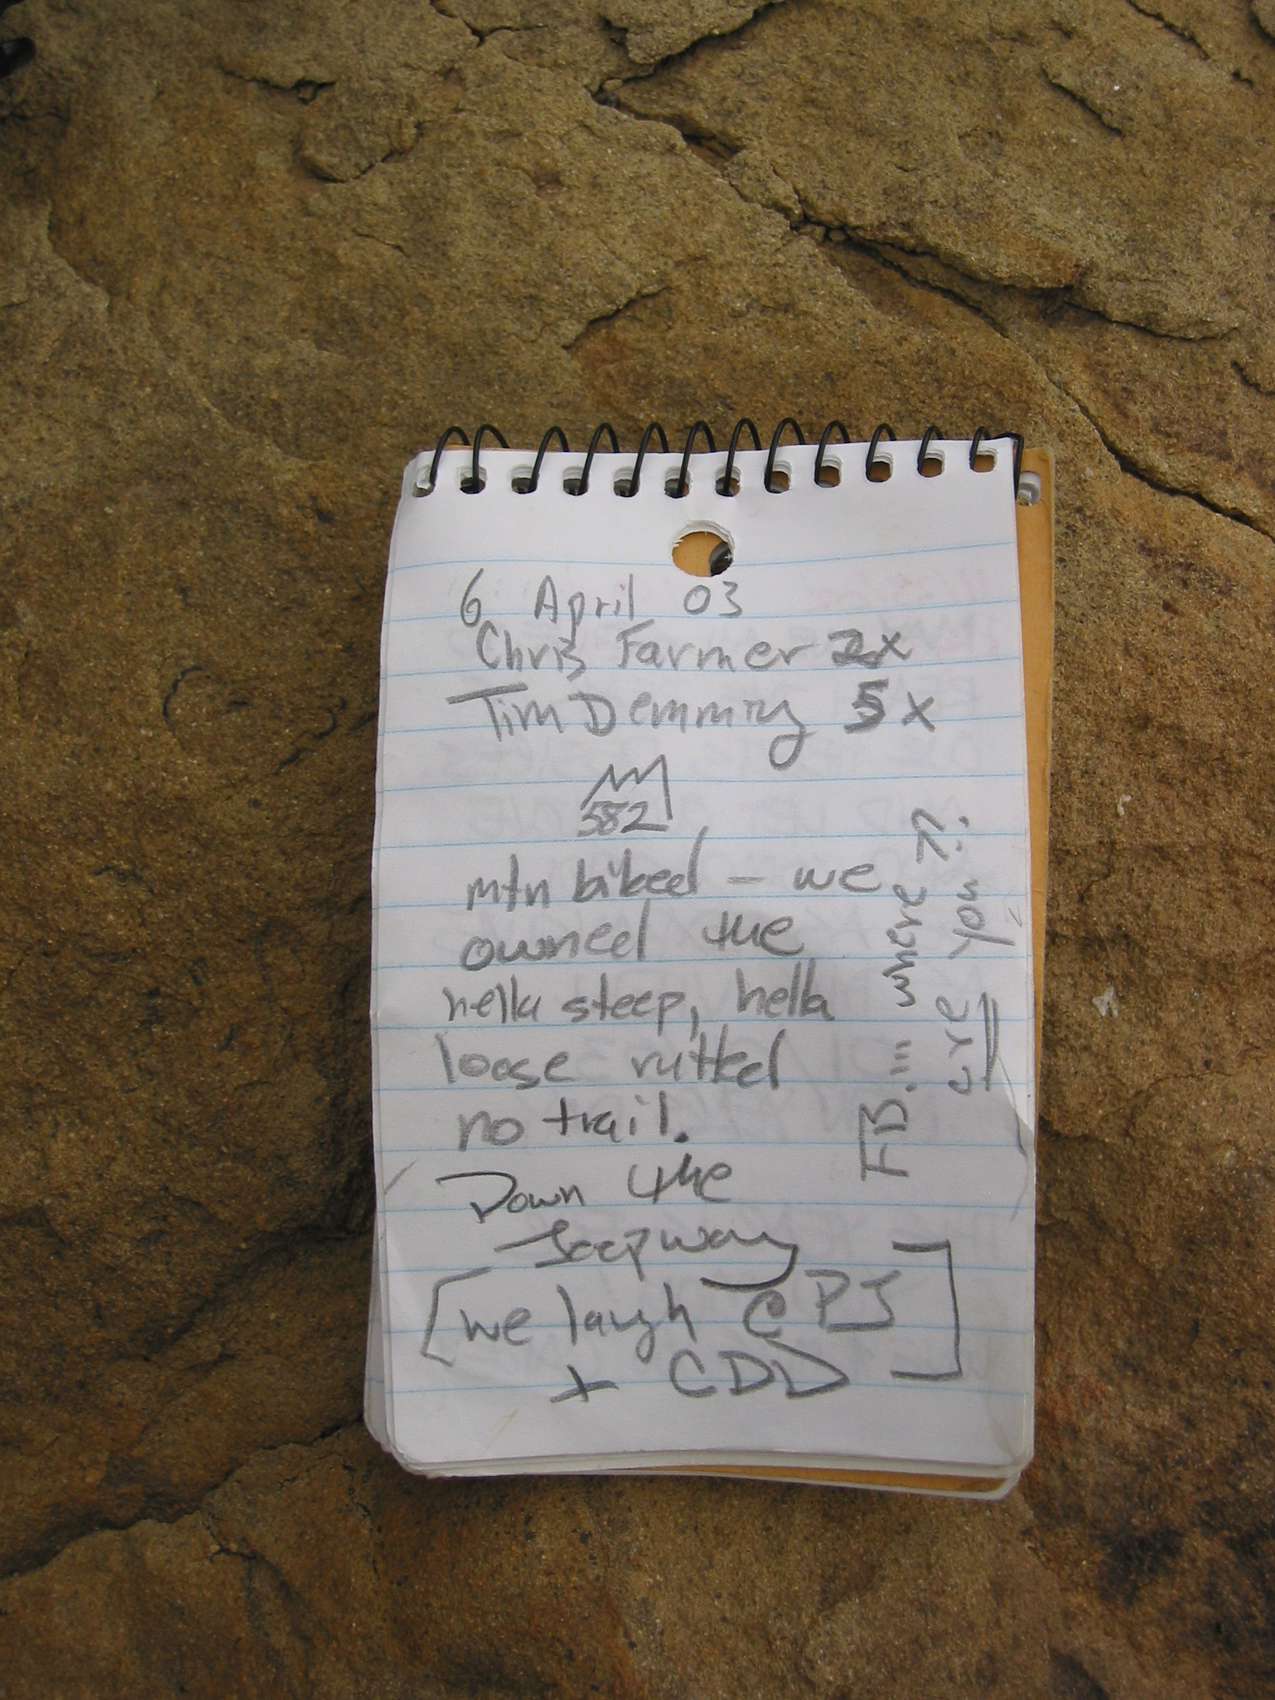 6 April 03
Chris Farmer 2x
Tim Demming 5x
582
mtn biked - we
owned the
hella steep, hella
loose rutted
no trail.
Down the
Seepway
[we laugh @ PJ
+ CDD]
FB... where
are you ??